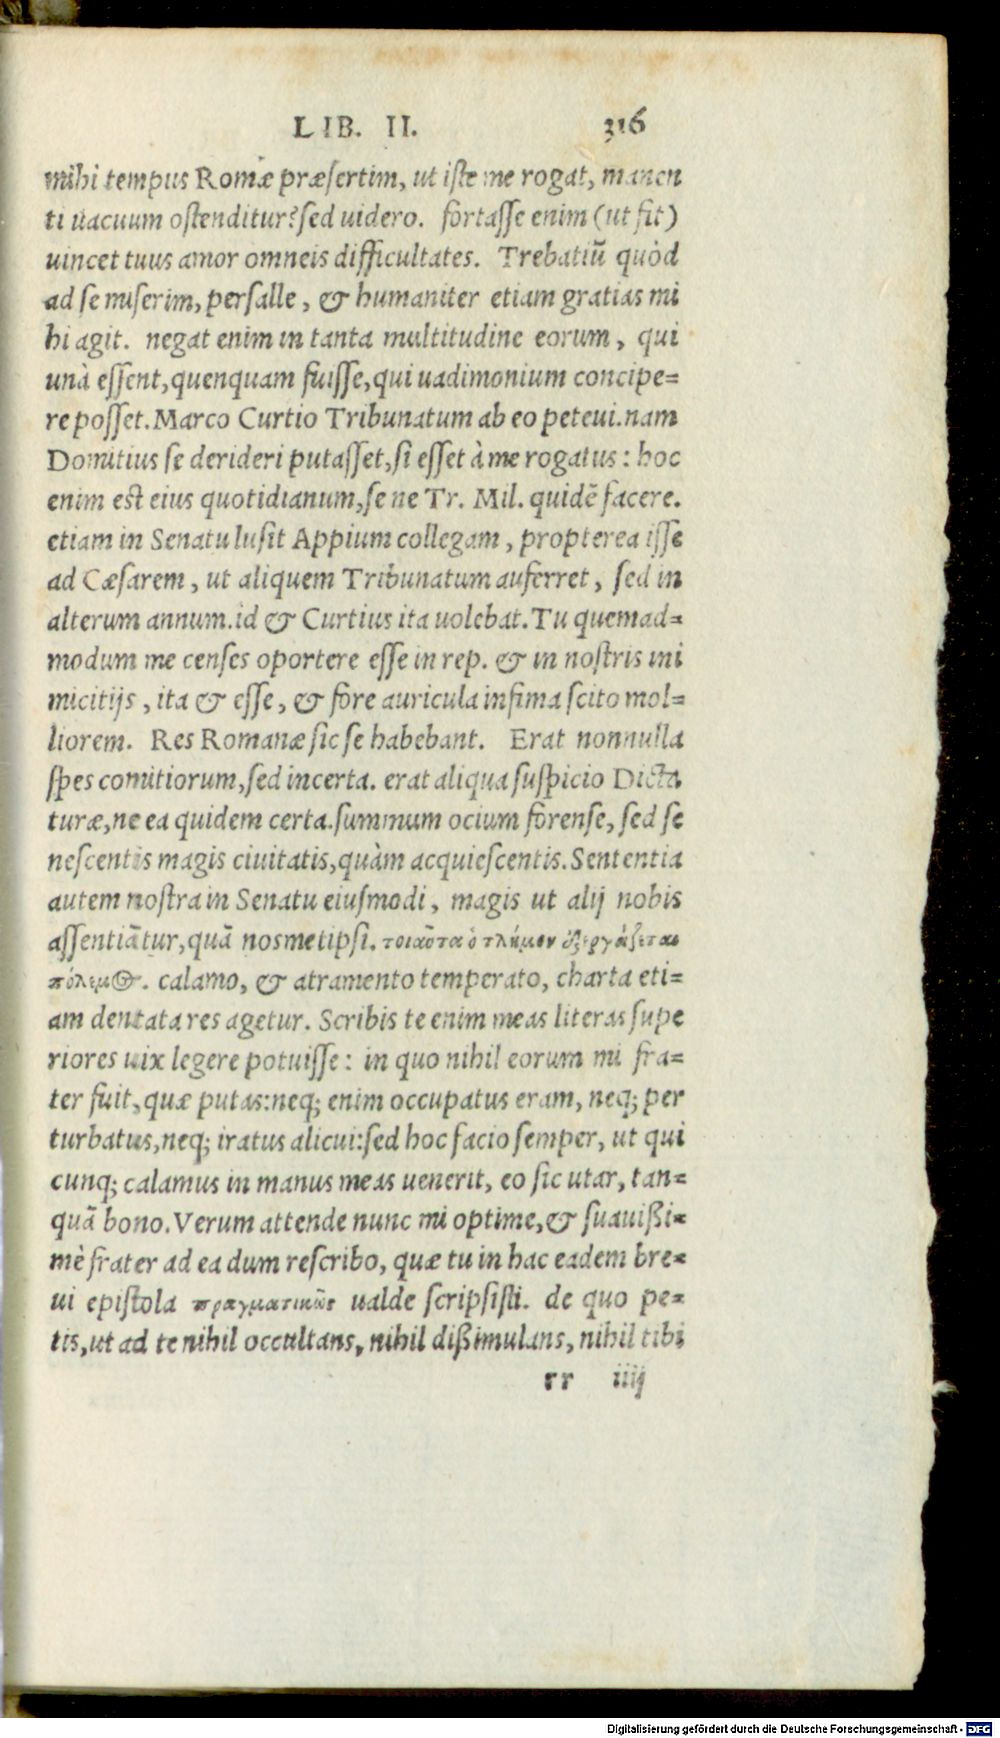 LIB. II. 316
mihi tempus Romæ præsertim, ut iste me rogat, manen
ti uacuum ostenditur? sed uidero. fortasse enim (ut fit)
uincet tuus amor omneis difficultates. Trebatiũ quòd
ad se miserim, persalse, & humaniter etiam gratias mi
hi agit. negat enim in tanta multitudine eorum, qui
unà essent, quenquam fuisse, qui uadimonium concipe=
re posset. Marco Curtio Tribunatum ab eo peteui. nam
Domitius se derideri putasset, si esset à me rogatus: hoc
enim est eius quotidianum, se ne Tr. Mil. quidẽ facere.
etiam in Senatu lusit Appium collegam, propterea isse
ad Cæsarem, ut aliquem Tribunatum auferret, sed in
alterum annum. id & Curtius ita uolebat. Tu quemad=
modum me censes oportere esse in rep. & in nostris ini
micitijs, ita & esse, & fore auricula infima scito mol=
liorem. Res Romanæ sic se habebant. Erat nonnulla
spes comitiorum, sed incerta. erat aliqua suspicio Dicta
turæ, ne ea quidem certa. summum ocium forense, sed se
nescentis magis ciuitatis, quàm acquiescentis. Sententia
autem nostra in Senatu eiusmodi, magis ut alij nobis
assentiãtur, quã nosmetipsi. τοιαῦτα ὁ τλήμον ἐξεργάζεται
πόλεμος. calamo, & atramento temperato, charta eti=
am dentata res agetur. Scribis te enim meas literas supe
riores uix legere potuisse: in quo nihil eorum mi fra=
ter fuit, quæ putas: neq; enim occupatus eram, neq; per
turbatus, neq; iratus alicui: sed hoc facio semper, ut qui
cunq; calamus in manus meas uenerit, eo sic utar, tan=
quã bono. Verum attende nunc mi optime, & suauißi=
mè frater ad ea dum rescribo, quæ tu in hac eadem bre=
ui epistola πραγματικῶς ualde scripsisti. de quo pe=
tis, ut ad te nihil occultans, nihil dißimulans, nihil tibi
rr iiij
Digitalisierung gefördert durch die Deutsche Forschungsgemeinschaft - DFG